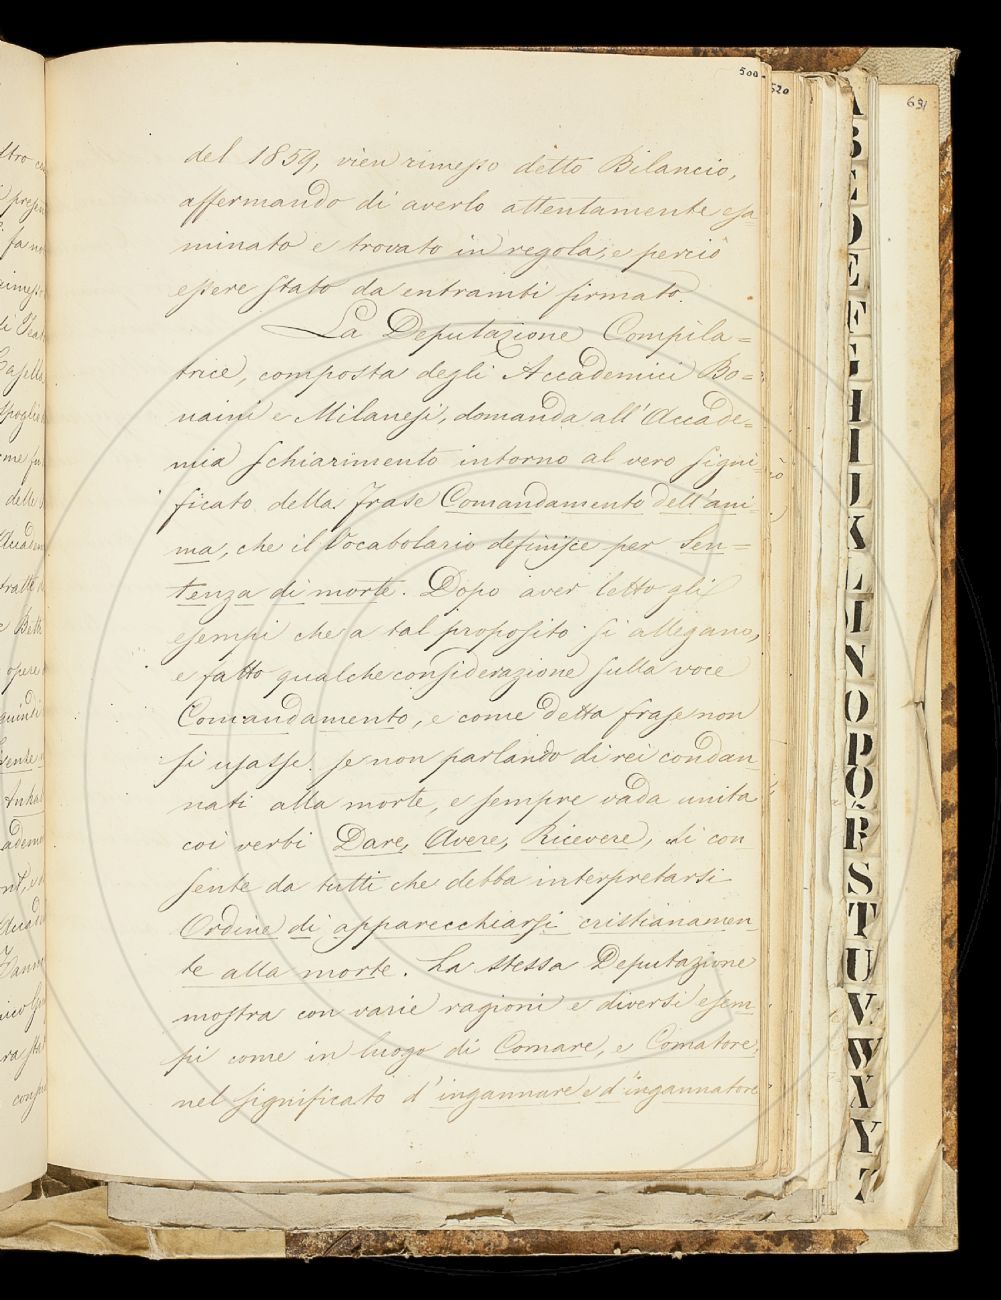 500.
520
691
del 1859, vien rimesso detto Bilancio,
affermando di averlo attentamente esa=
minato e trovato in regola, e perciò
essere stato da entrambi firmato.
La Deputazione Compila=
trice, composta degli Accademici Bo=
naini e Milanesi, domanda all'Accade=
mia schiarimento intorno al vero signi=
ficato della frase Comandamento dell'ani=
ma, che il Vocabolario definisce per Sen=
tenza di morte. Dopo aver letto gli
esempi che a tal proposito si allegano,
e fatto qualche considerazione sulla voce
Comandamento, e come detta frase non
si usasse se non parlando di rei condan=
nati alla morte, e sempre vada unita
coi verbi Dare, Avere, Ricevere, si con
sente da tutti che debba interpretarsi
Ordine di apparecchiarsi cristianamen
te alla morte. La stessa Deputazione
mostra con varie ragioni e diversi esem=
pi come in luogo di Comare, e Comatore,
nel significato d'ingannare e d'ingannatore
A
B
C
D
E
F
G
H
I
J
K
L
M
N
O
P
Q
R
S
T
U
V
W
X
Y
Z